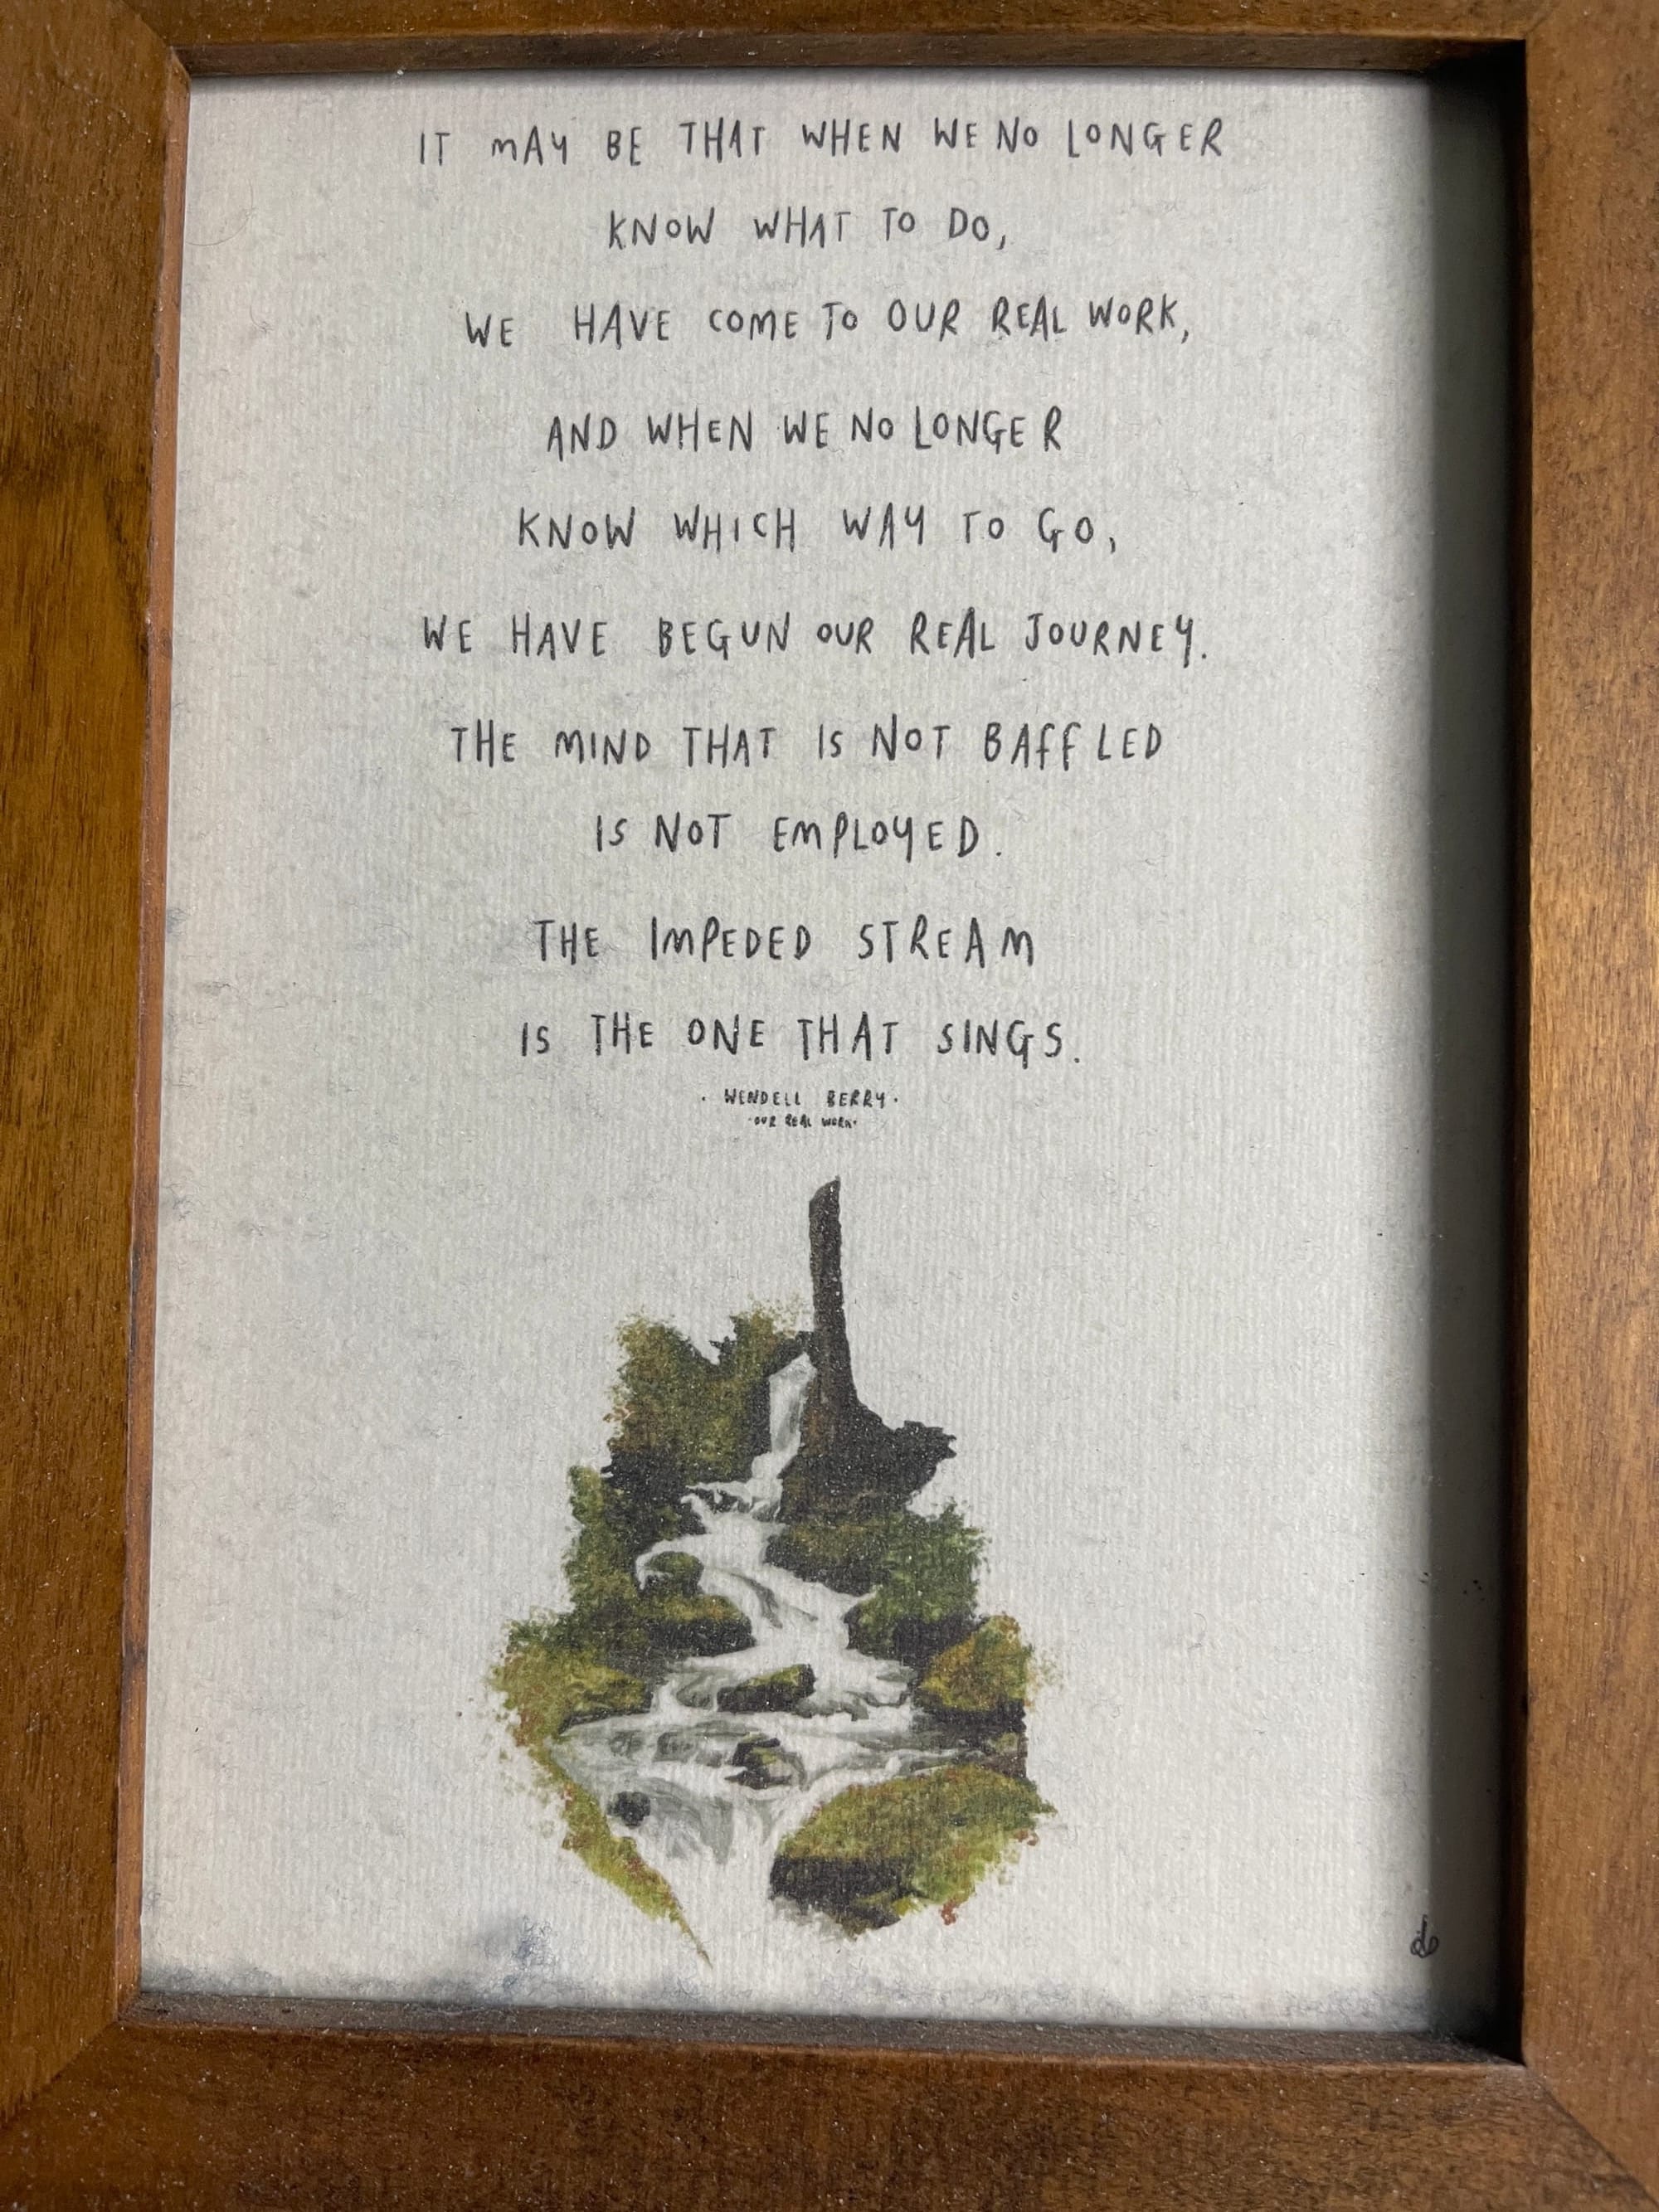 IT MAY BE THAT WHEN WE NO LONGER
KNOW WHAT TO DO,
WE HAVE COME TO OUR REAL WORK,
AND WHEN WE NO LONGER
KNOW WHICH WAY TO GO,
WE HAVE BEGUN OUR REAL JOURNEY.
THE MIND THAT IS NOT BAFFLED
IS NOT EMPLOYED.
THE IMPEDED STREAM
IS THE ONE THAT SINGS.
· WENDELL BERRY ·
·OUR REAL WORK·